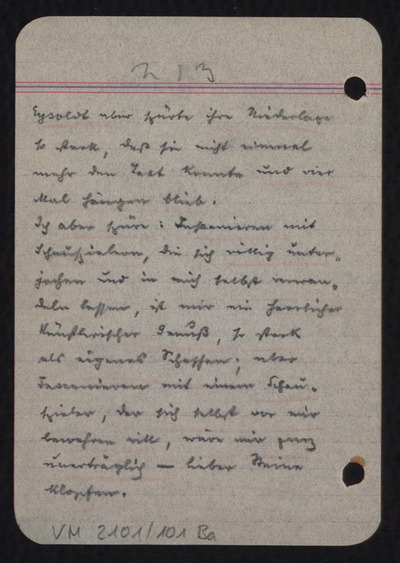 213
Eysoldt aber spürte ihre Niederlage
so stark, daß sie nicht einmal
mehr den Text konnte und vier
Mal hängen blieb.
Ich aber spüre: Inszenieren mit
Schauspielern, die sich völlig unter-
jochen und in mich selbst verwan-
deln lassen, ist mir ein herrlicher
künstlerischer Genuß, so stark
als eigenes Schaffen; aber
Inszenieren mit einem Schau-
spieler, der sich selbst vor mir
bewahren will, wäre mir ganz
unerträglich — lieber Steine
klopfen.
VM 2101/101 Ba